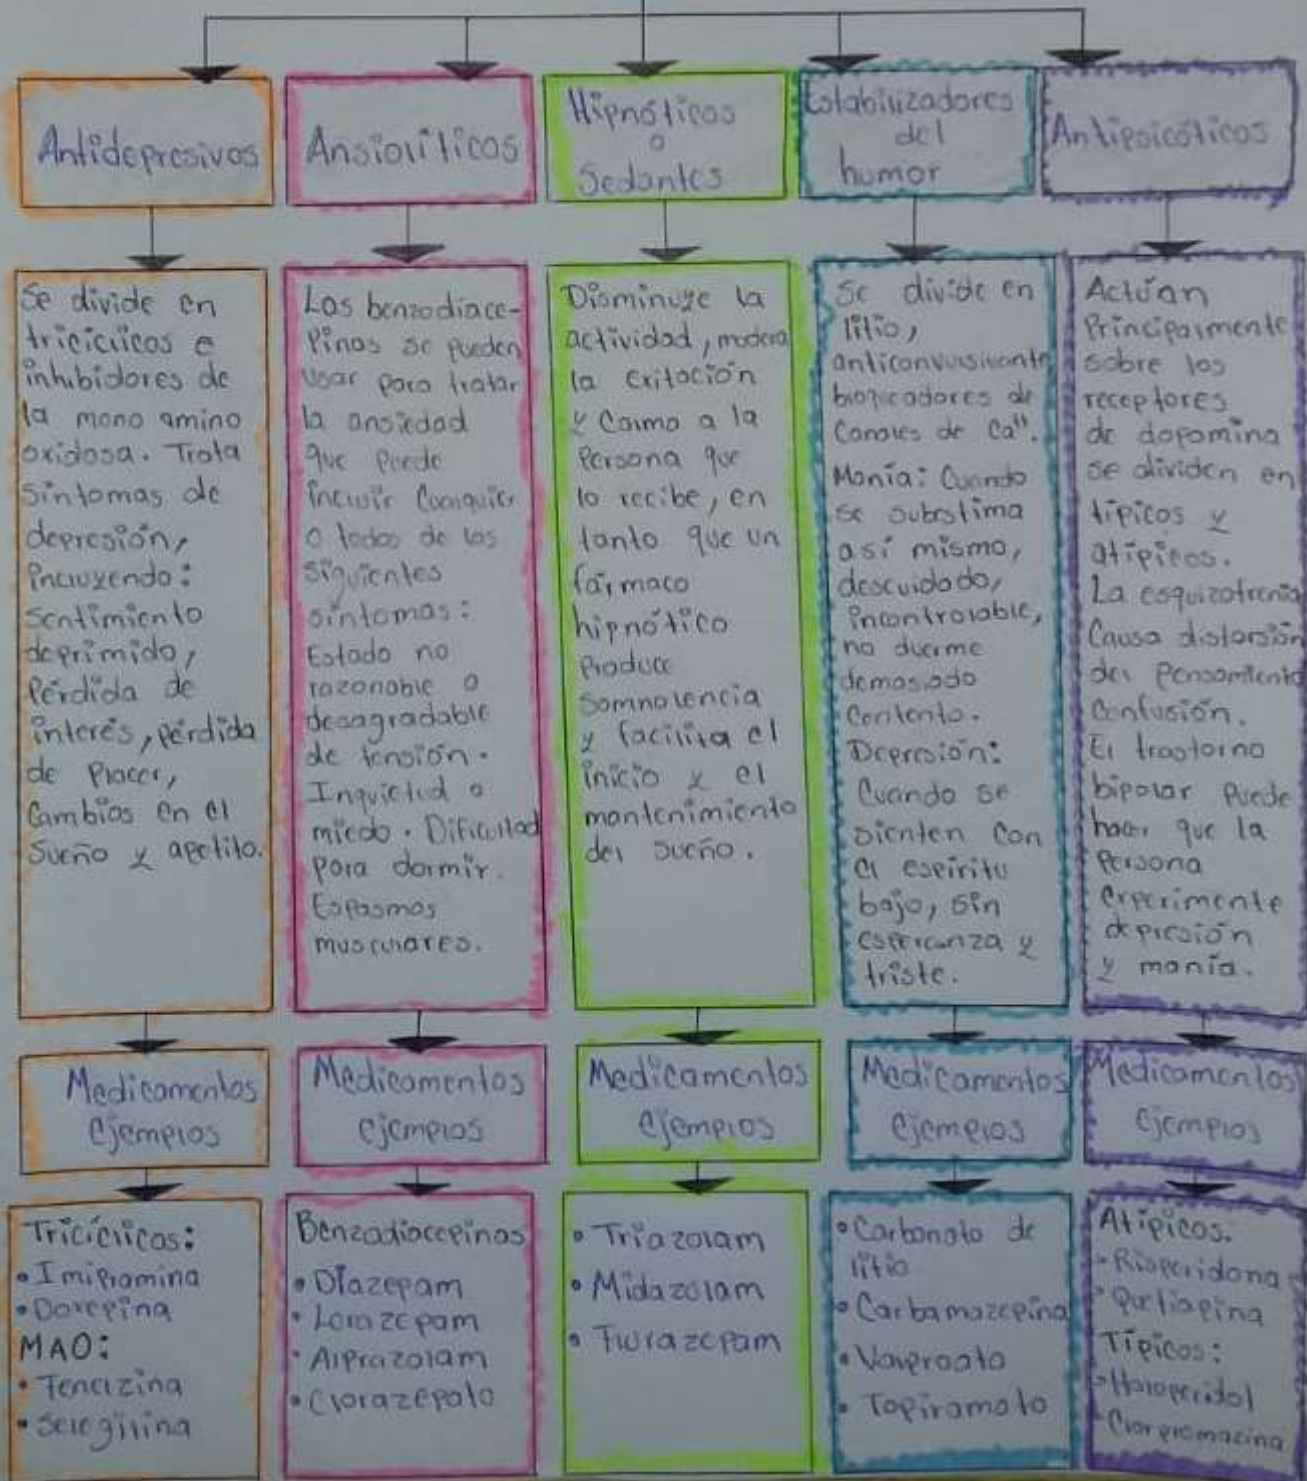 Antidepresivos
Se divide en
tricíclicos e
inhibidores de
la mono amino
oxidasa. Trata
síntomas de
depresión,
incluyendo:
sentimiento
deprimido,
Pérdida de
interés, pérdida
de Placer,
Cambios en el
Sueño y apetito.
Medicamentos
ejemplos
Tricíclicos:
• Imipramina
• Doxepina
MAO:
• Fenelzina
• Selegilina
Ansiolíticos
Las benzodiace-
Pinas se pueden
usar para tratar
la ansiedad
que Puede
incluir Cualquier
o todos de los
siguientes
síntomas:
Estado no
razonable o
desagradable
de tensión.
Inquietud o
miedo. Dificultad
para dormir.
Espasmos
musculares.
Medicamentos
ejemplos
Benzodiacepinas
• Diazepam
• Lorazepam
• Alprazolam
• Clorazepato
Hipnóticos
o
Sedantes
Disminuye la
actividad, modera
la exitación
y Calma a la
Persona que
lo recibe, en
tanto que un
fármaco
hipnótico
Produce
Somnolencia
y facilita el
inicio y el
mantenimiento
del sueño.
Medicamentos
ejemplos
• Triazolam
• Midazolam
• Flurazepam
Estabilizadores
del
humor
Se divide en
litio,
anticonvulsivante
bloqueadores de
Canales de Ca⁺⁺.
Manía: Cuando
se substima
así mismo,
descuidado,
incontrolable,
no duerme
demasiado
Contento.
Depresión:
Cuando se
sienten Con
el espíritu
bajo, sin
esperanza y
triste.
Medicamentos
ejemplos
• Carbonato de
litio
• Carbamazepina
• Valproato
• Topiramato
Antipsicóticos
Actúan
Principalmente
sobre los
receptores
de dopamina
se dividen en
típicos y
atípicos.
La esquizofrenia
Causa distorsión
del Pensamiento
Confusión.
El trastorno
bipolar Puede
hacer que la
Persona
experimente
depresión
y manía.
Medicamentos
ejemplos
Atípicos:
- Risperidona
- Quetiapina
Típicos:
- Haloperidol
- Clorpromacina